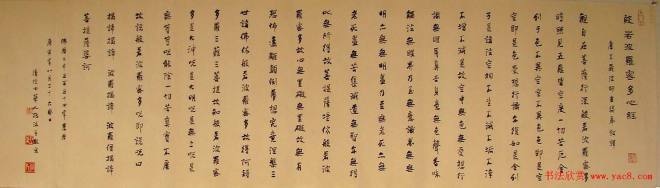 般若波羅蜜多心經
唐三藏法師玄奘奉詔譯
觀自在菩薩行深般若波羅蜜多
時照見五蘊皆空度一切苦厄舍
利子色不異空空不異色色即是空
空即是色受想行識亦復如是舍利
子是諸法空相不生不滅不垢不淨
不增不減是故空中無色無受想行
識無眼耳鼻舌身意無色聲香味
觸法無眼界乃至無意識界無無
明亦無無明盡乃至無老死亦無
老死盡無苦集滅道無智亦無得
以無所得故菩提薩埵依般若波
羅蜜多故心無罣礙無罣礙故無有
恐怖遠離顛倒夢想究竟涅槃三
世諸佛依般若波羅蜜多故得阿耨
多羅三藐三菩提故知般若波羅蜜
多是大神咒是大明咒是無上咒是
無等等咒能除一切苦真實不虛
故說般若波羅蜜多咒即說咒曰
揭諦揭諦 波羅揭諦 波羅僧揭諦
菩提薩婆訶
书法欣赏
http://www.yac8.com